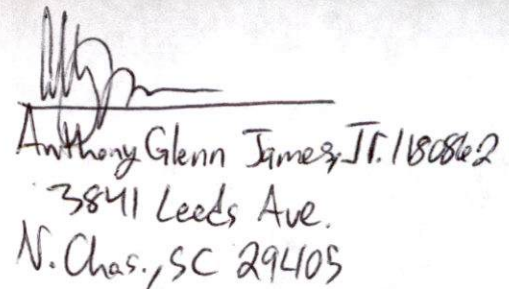 Anthony Glenn James, Jr. 1180862
3841 Leeds Ave.
N. Chas., SC 29405